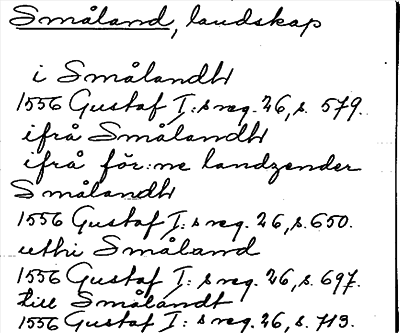 Småland, landskap
i Smålandh
1556 Gustaf I:s reg. 26, s. 579.
ifrå Smålandh
ifrå för:ne landzender
Smålandh
1556 Gustaf I:s reg. 26, s. 650.
uthi Småland
1556 Gustaf I:s reg. 26, s. 697.
till Smålandt
1556 Gustaf I:s reg. 26, s. 713.